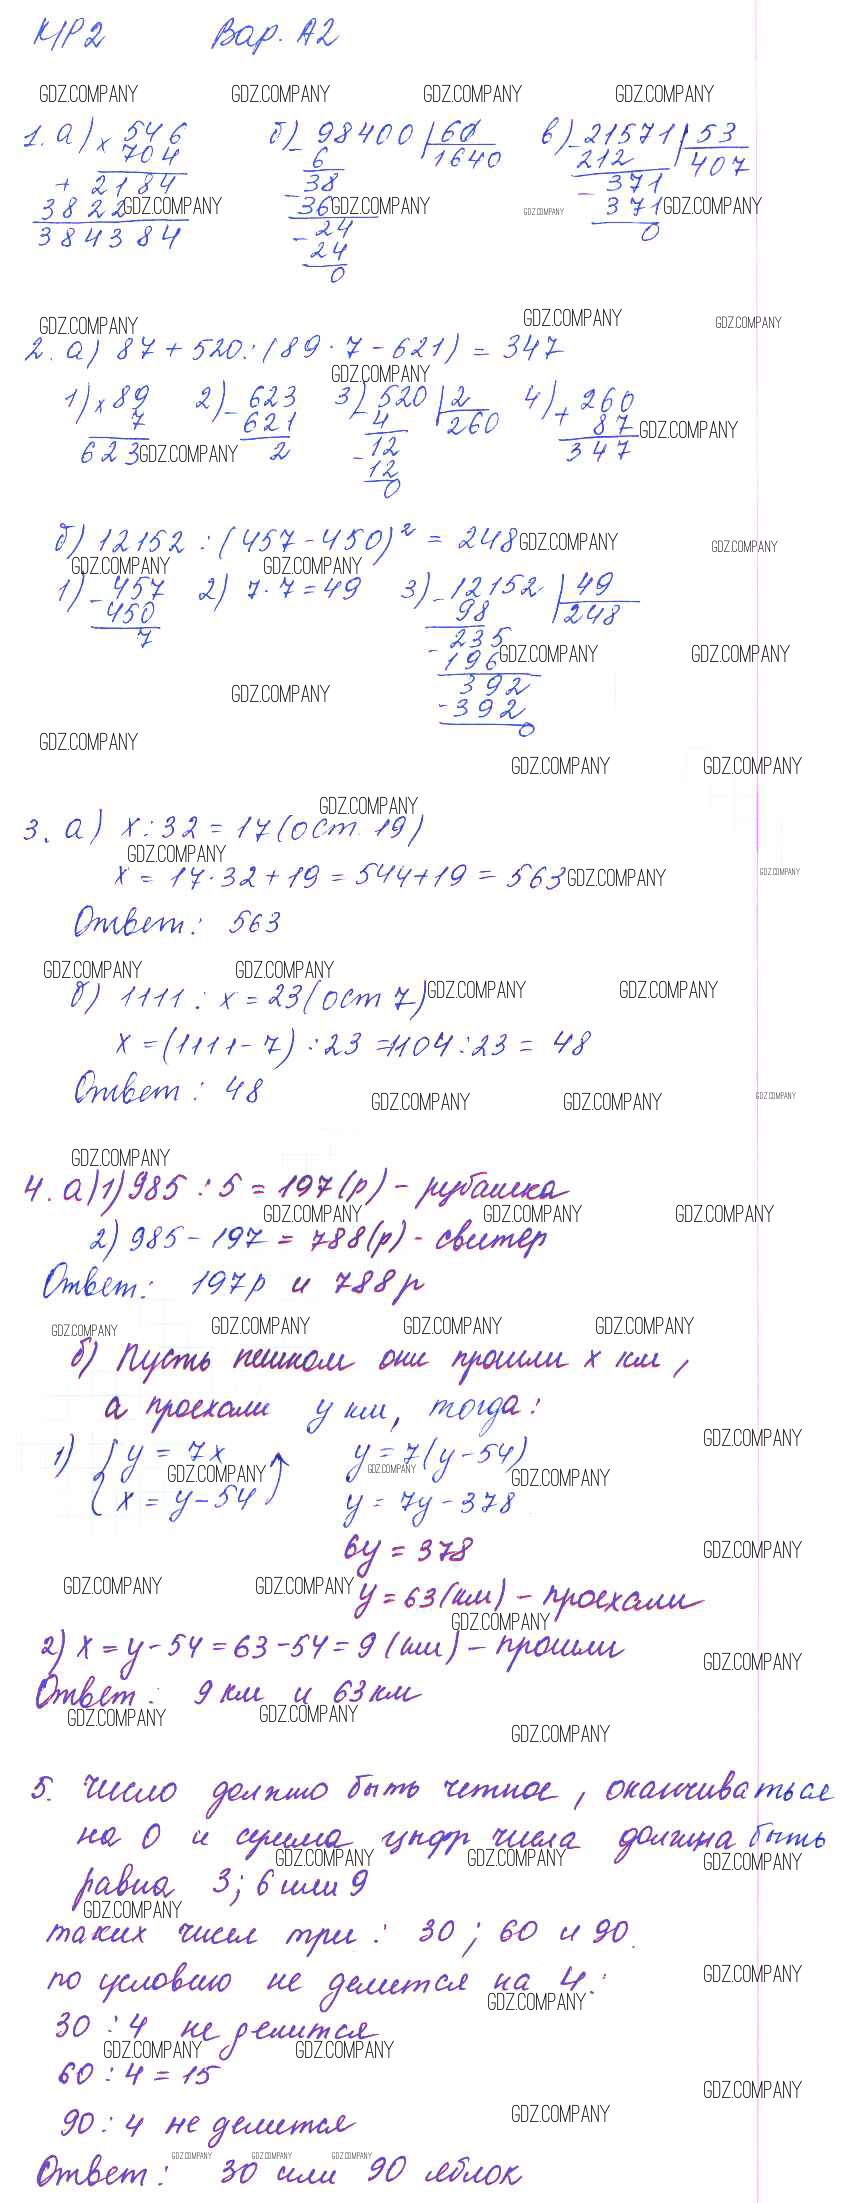 К/Р2 Вар. А2
GDZ.COMPANY GDZ.COMPANY GDZ.COMPANY GDZ.COMPANY
1. а) × 546 б) − 98400 | 60 в) − 21571 | 53
704 6 1640 212 407
+ 2184 − 38 − 371
3822 36 371
GDZ.COMPANY GDZ.COMPANY GDZ.COMPANY GDZ.COMPANY
384384 − 24 0
24
0
GDZ.COMPANY GDZ.COMPANY GDZ.COMPANY
2. а) 87 + 520 : (89 · 7 − 621) = 347
GDZ.COMPANY
1) × 89 2) − 623 3) − 520 | 2 4) + 260
7 621 4 260 87
623 2 − 12 347
GDZ.COMPANY GDZ.COMPANY
12
0
б) 12152 : (457 − 450)² = 248
GDZ.COMPANY GDZ.COMPANY
GDZ.COMPANY GDZ.COMPANY
1) − 457 2) 7 · 7 = 49 3) − 12152 | 49
450 98 248
7 − 235
196
GDZ.COMPANY GDZ.COMPANY
392
GDZ.COMPANY
− 392
0
GDZ.COMPANY
GDZ.COMPANY GDZ.COMPANY
GDZ.COMPANY
3. а) x : 32 = 17 (ост. 19)
GDZ.COMPANY
x = 17 · 32 + 19 = 544 + 19 = 563
GDZ.COMPANY GDZ.COMPANY
Ответ: 563
GDZ.COMPANY GDZ.COMPANY GDZ.COMPANY GDZ.COMPANY
б) 1111 : x = 23 (ост 7)
x = (1111 − 7) : 23 = 1104 : 23 = 48
Ответ: 48
GDZ.COMPANY GDZ.COMPANY GDZ.COMPANY
GDZ.COMPANY
4. а) 1) 985 : 5 = 197 (р) − рубашка
GDZ.COMPANY GDZ.COMPANY GDZ.COMPANY
2) 985 − 197 = 788 (р) − свитер
Ответ: 197р и 788р
GDZ.COMPANY GDZ.COMPANY GDZ.COMPANY GDZ.COMPANY
б) Пусть пешком они прошли x км,
а проехали y км, тогда:
GDZ.COMPANY
1) { y = 7x y = 7(y − 54)
GDZ.COMPANY GDZ.COMPANY GDZ.COMPANY
x = y − 54 y = 7y − 378
6y = 378
GDZ.COMPANY
GDZ.COMPANY GDZ.COMPANY
y = 63 (км) − проехали
GDZ.COMPANY
2) x = y − 54 = 63 − 54 = 9 (км) − прошли
GDZ.COMPANY
Ответ: 9 км и 63 км
GDZ.COMPANY GDZ.COMPANY
GDZ.COMPANY
5. Число должно быть четное, оканчиваться
на 0 и сумма цифр числа должна быть
GDZ.COMPANY GDZ.COMPANY GDZ.COMPANY
равна 3; 6 или 9
GDZ.COMPANY
таких чисел три: 30; 60 и 90.
по условию не делится на 4:
GDZ.COMPANY
GDZ.COMPANY
30 : 4 не делится
GDZ.COMPANY GDZ.COMPANY
60 : 4 = 15
GDZ.COMPANY
90 : 4 не делится
GDZ.COMPANY
GDZ.COMPANY GDZ.COMPANY GDZ.COMPANY
Ответ: 30 или 90 яблок